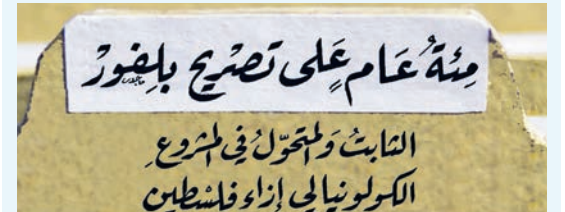 مِئَةُ عَام عَلى تصْريح بلِفورْ
الثابتُ وَالمتحوّلُ في المشروعِ
الكولونيالي إزاء فلسطين